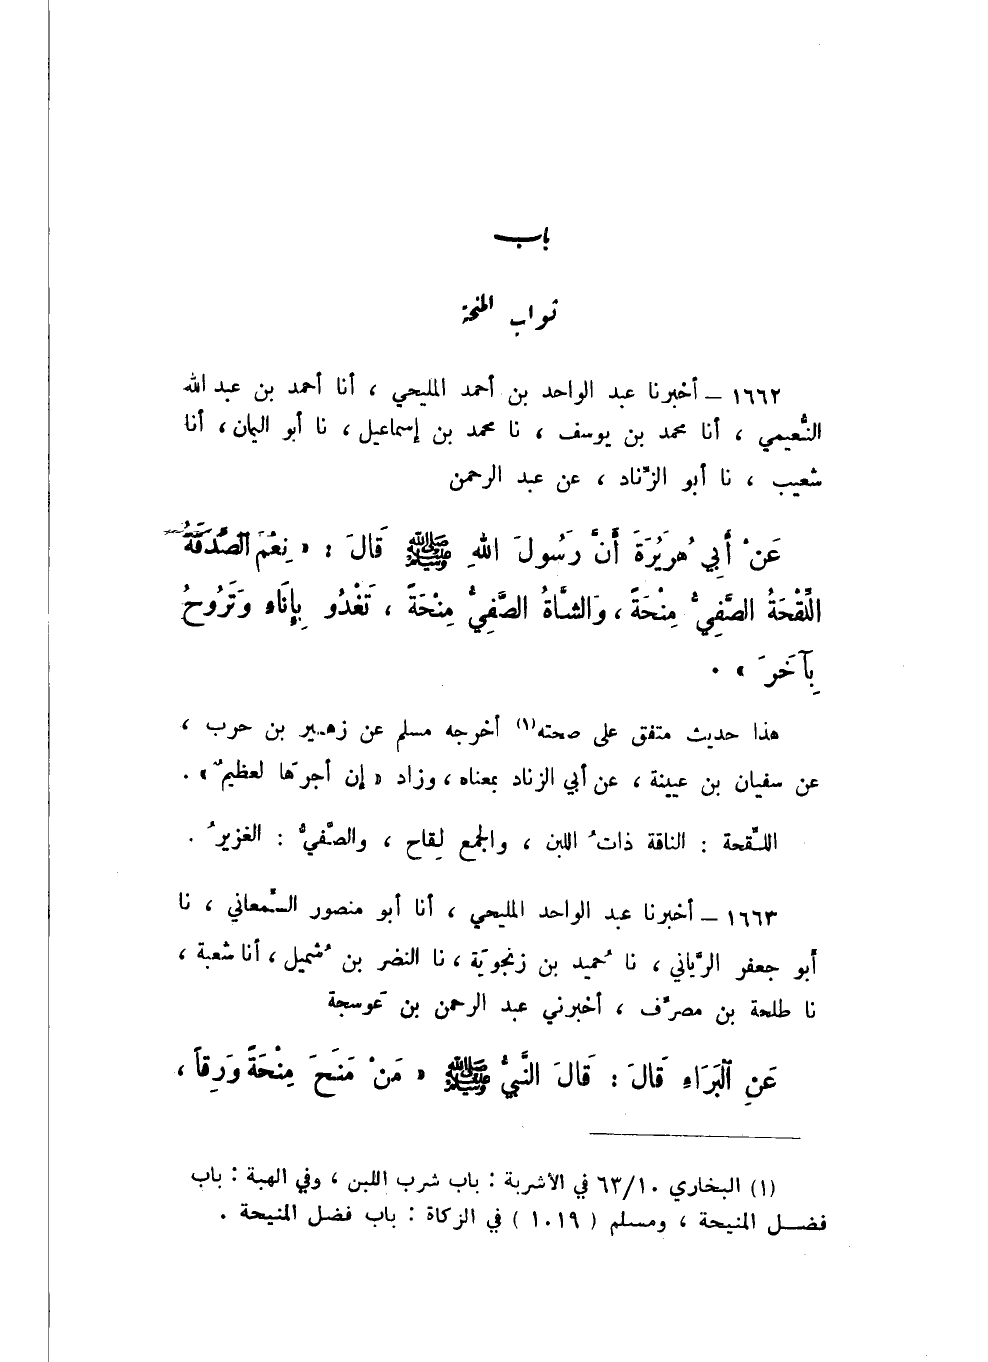 باب
ثواب المنحة
١٦٦٢ – أخبرنا عبد الواحد بن أحمد المليحي ، أنا أحمد بن عبد الله
النُّعيمي ، أنا محمد بن يوسف ، نا محمد بن إسماعيل ، نا أبو اليمان ، أنا
شعيب ، نا أبو الزِّناد ، عن عبد الرحمن
عَنْ أَبِي هُرَيْرَةَ أَنَّ رَسُولَ اللهِ ﷺ قَالَ : « نِعْمَ الصَّدَقَةُ
اللِّقْحَةُ الصَّفِيُّ مِنْحَةً ، وَالشَّاةُ الصَّفِيُّ مِنْحَةً ، تَغْدُو بِإِنَاءٍ وَتَرُوحُ
بِآخَرَ » .
هذا حديث متفق على صحته(١) أخرجه مسلم عن زهير بن حرب ،
عن سفيان بن عيينة ، عن أبي الزناد بمعناه ، وزاد « إن أجرَها لعظيمٌ » .
اللِّقحة : الناقة ذاتُ اللبن ، والجمع لِقاح ، والصَّفيُّ : الغزيرُ .
١٦٦٣ – أخبرنا عبد الواحد المليحي ، أنا أبو منصور السَّمعاني ، نا
أبو جعفر الرَّياني ، نا حُميد بن زنجويَة ، نا النضر بن شُميل ، أنا شعبة ،
نا طلحة بن مصرِّف ، أخبرني عبد الرحمن بن عَوسجة
عَنِ الْبَرَاءِ قَالَ : قَالَ النَّبِيُّ ﷺ « مَنْ مَنَحَ مِنْحَةً وَرِقاً ،
(١) البخاري ٦٣/١٠ في الأشربة : باب شرب اللبن ، وفي الهبة : باب
فضل المنيحة ، ومسلم ( ١٠١٩ ) في الزكاة : باب فضل المنيحة .